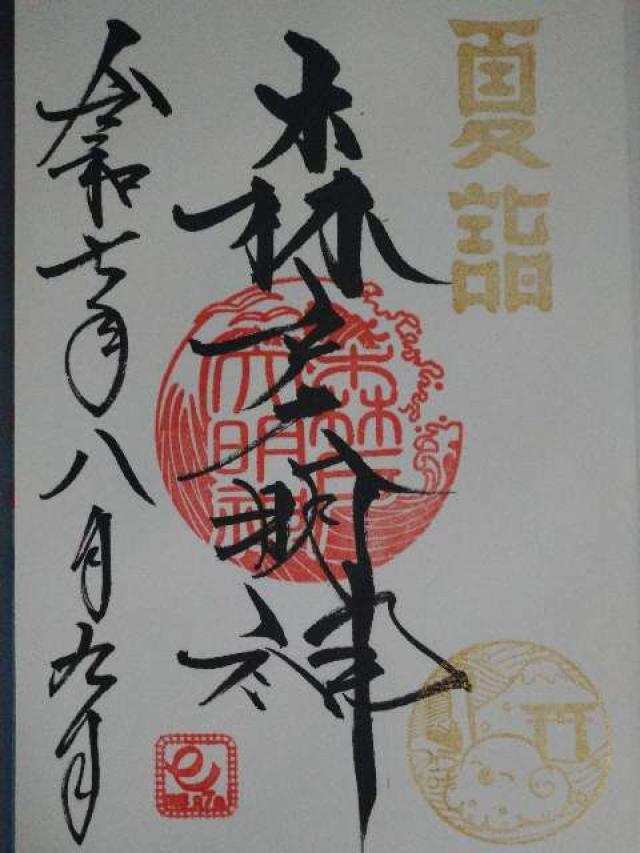 夏詣
森戸大明神
森戸大明神
令和七年八月九日